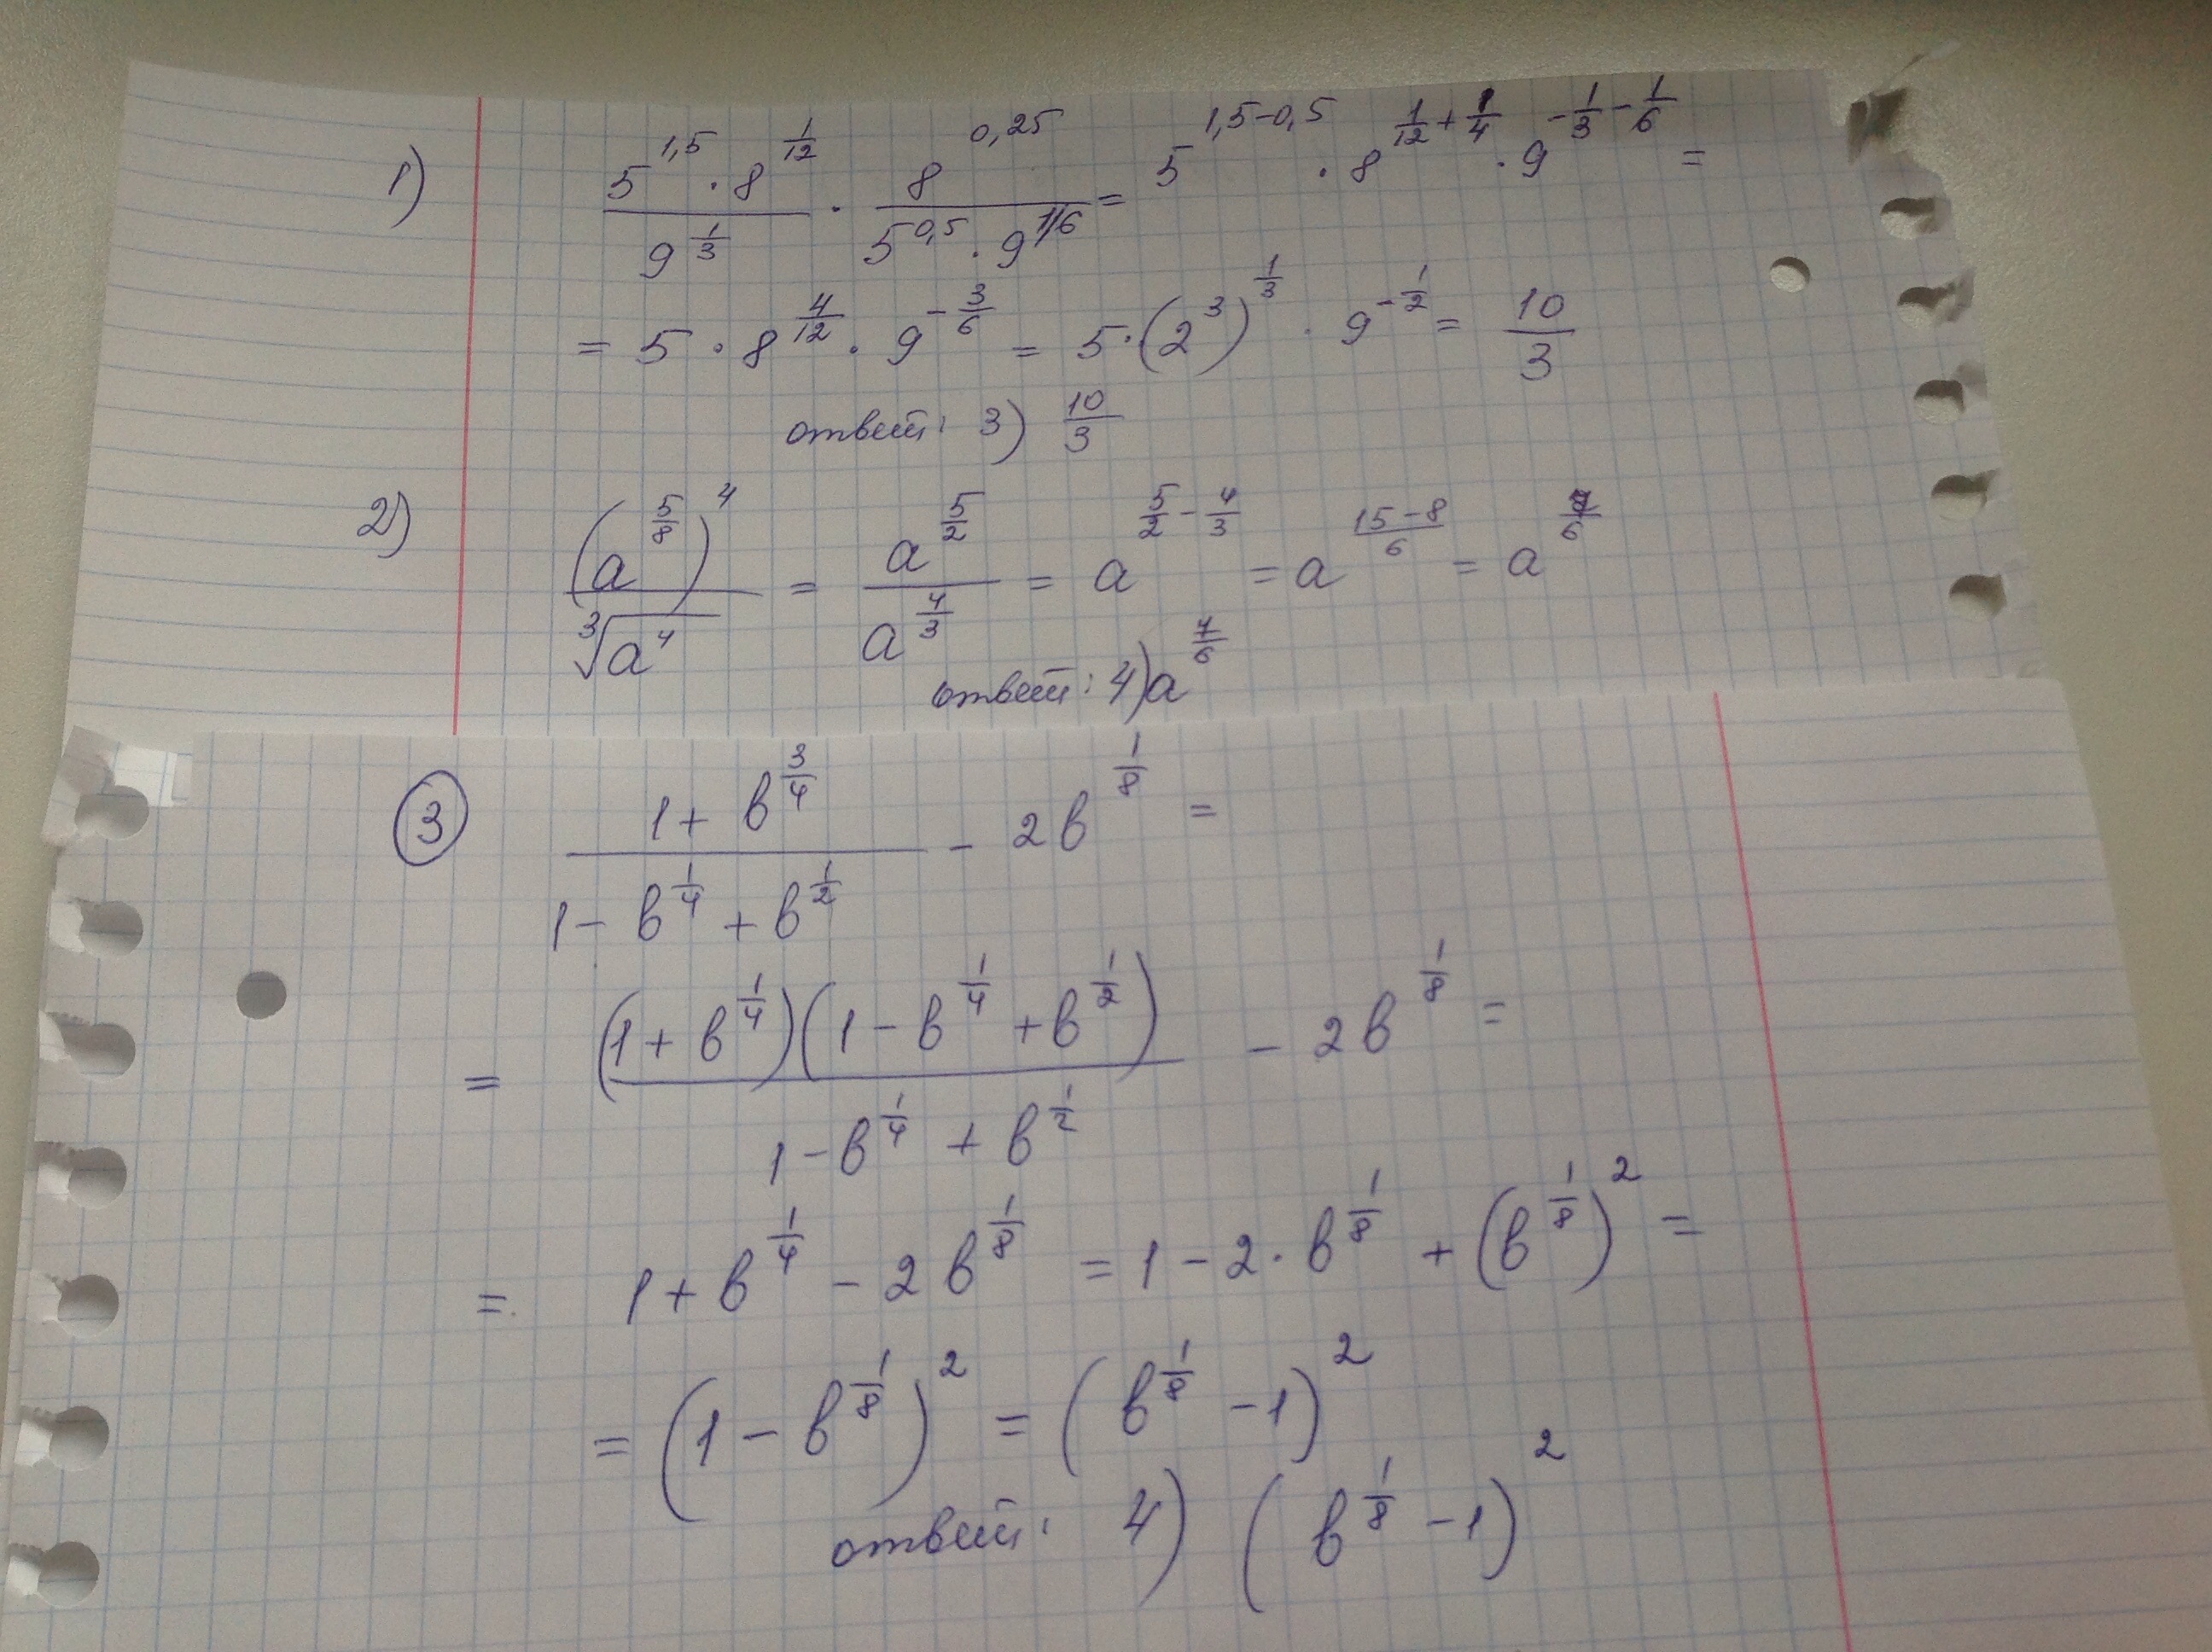 1) \frac{5^{1,5} \cdot 8^{\frac{1}{12}}}{9^{\frac{1}{3}}} \cdot \frac{8^{0,25}}{5^{0,5} \cdot 9^{1/6}} = 5^{1,5-0,5} \cdot 8^{\frac{1}{12}+\frac{1}{4}} \cdot 9^{-\frac{1}{3}-\frac{1}{6}} =
= 5 \cdot 8^{\frac{4}{12}} \cdot 9^{-\frac{3}{6}} = 5 \cdot (2^3)^{\frac{1}{3}} \cdot 9^{-\frac{1}{2}} = \frac{10}{3}
ответ: 3) \frac{10}{3}
2) \frac{(a^{\frac{5}{8}})^4}{\sqrt[3]{a^4}} = \frac{a^{\frac{5}{2}}}{a^{\frac{4}{3}}} = a^{\frac{5}{2}-\frac{4}{3}} = a^{\frac{15-8}{6}} = a^{\frac{7}{6}}
ответ: 4) a^{\frac{7}{6}}
3 \frac{1+b^{\frac{3}{4}}}{1-b^{\frac{1}{4}}+b^{\frac{1}{2}}} - 2b^{\frac{1}{8}} =
= \frac{(1+b^{\frac{1}{4}})(1-b^{\frac{1}{4}}+b^{\frac{1}{2}})}{1-b^{\frac{1}{4}}+b^{\frac{1}{2}}} - 2b^{\frac{1}{8}} =
= 1+b^{\frac{1}{4}} - 2b^{\frac{1}{8}} = 1-2 \cdot b^{\frac{1}{8}} + (b^{\frac{1}{8}})^2 =
= (1-b^{\frac{1}{8}})^2 = (b^{\frac{1}{8}}-1)^2
ответ: 4) (b^{\frac{1}{8}}-1)^2